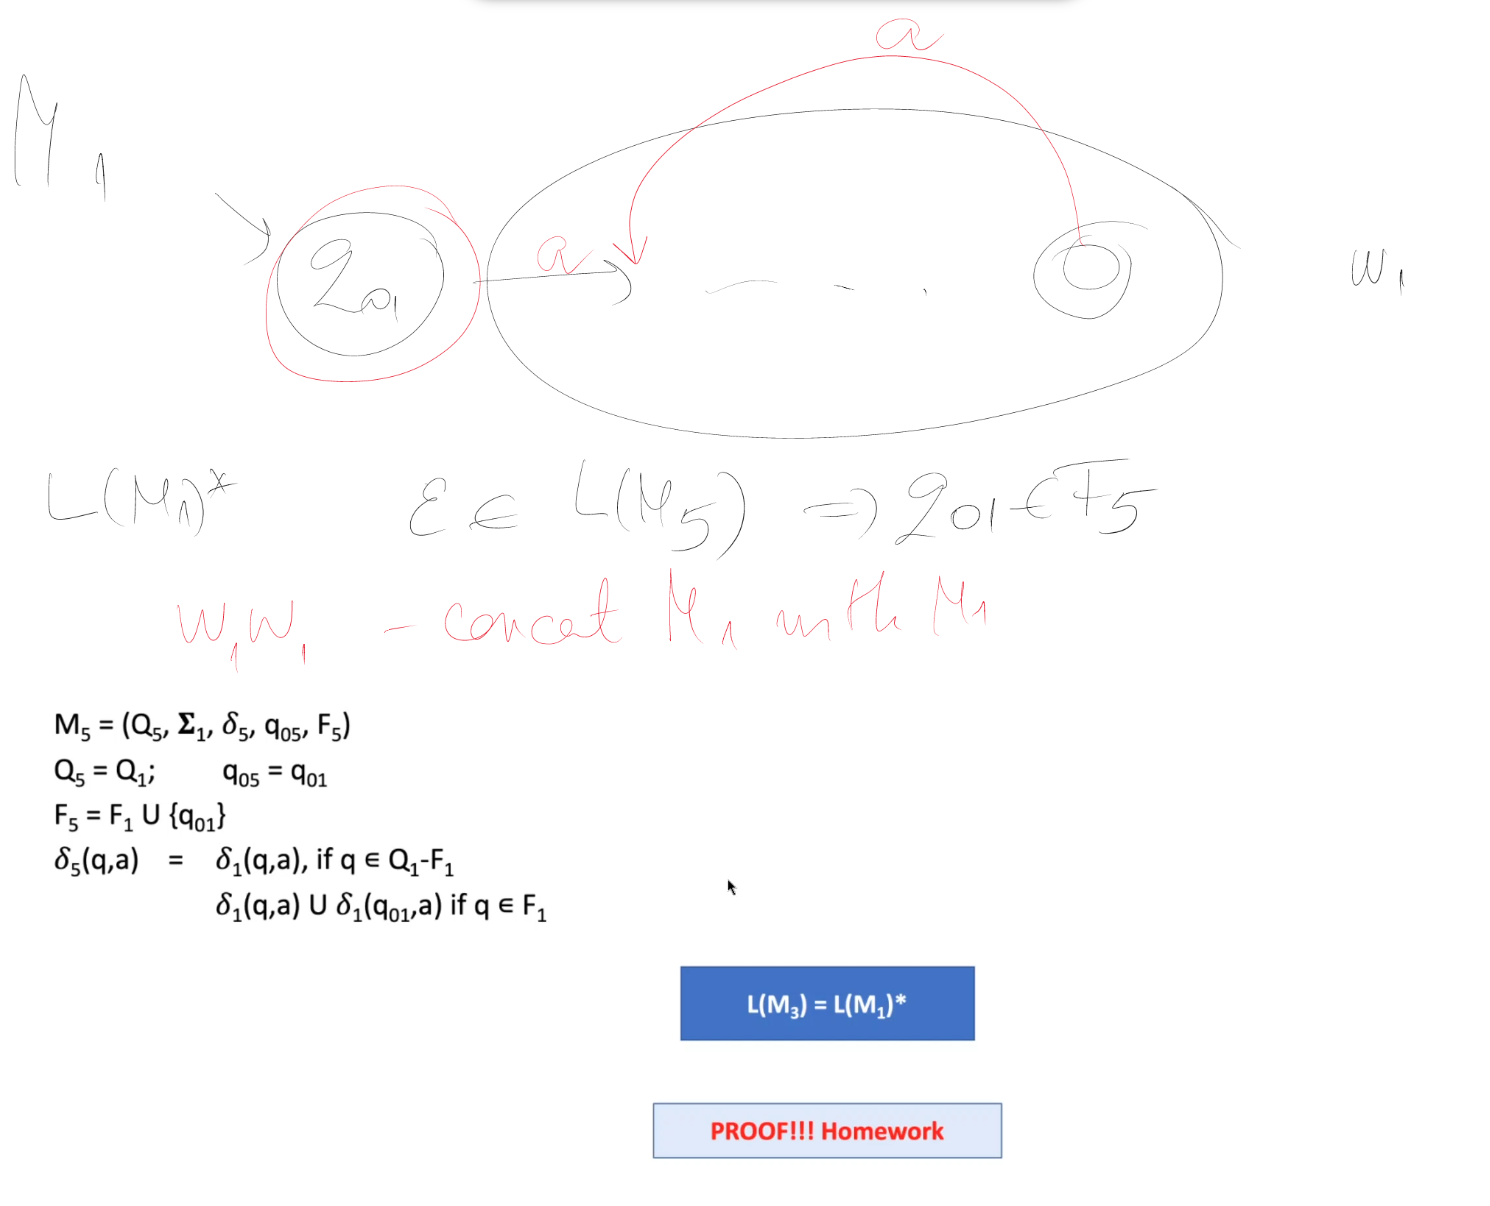 a
M₁
q₀₁ a w₁
L(M₁)* ε ∈ L(M₅) ⇒ q₀₁ ∈ F₅
w₁w₁ - concat M₁ with M₁
M₅ = (Q₅, Σ₁, δ₅, q₀₅, F₅)
Q₅ = Q₁; q₀₅ = q₀₁
F₅ = F₁ U {q₀₁}
δ₅(q,a) = δ₁(q,a), if q ∈ Q₁-F₁
δ₁(q,a) U δ₁(q₀₁,a) if q ∈ F₁
L(M₃) = L(M₁)*
PROOF!!! Homework